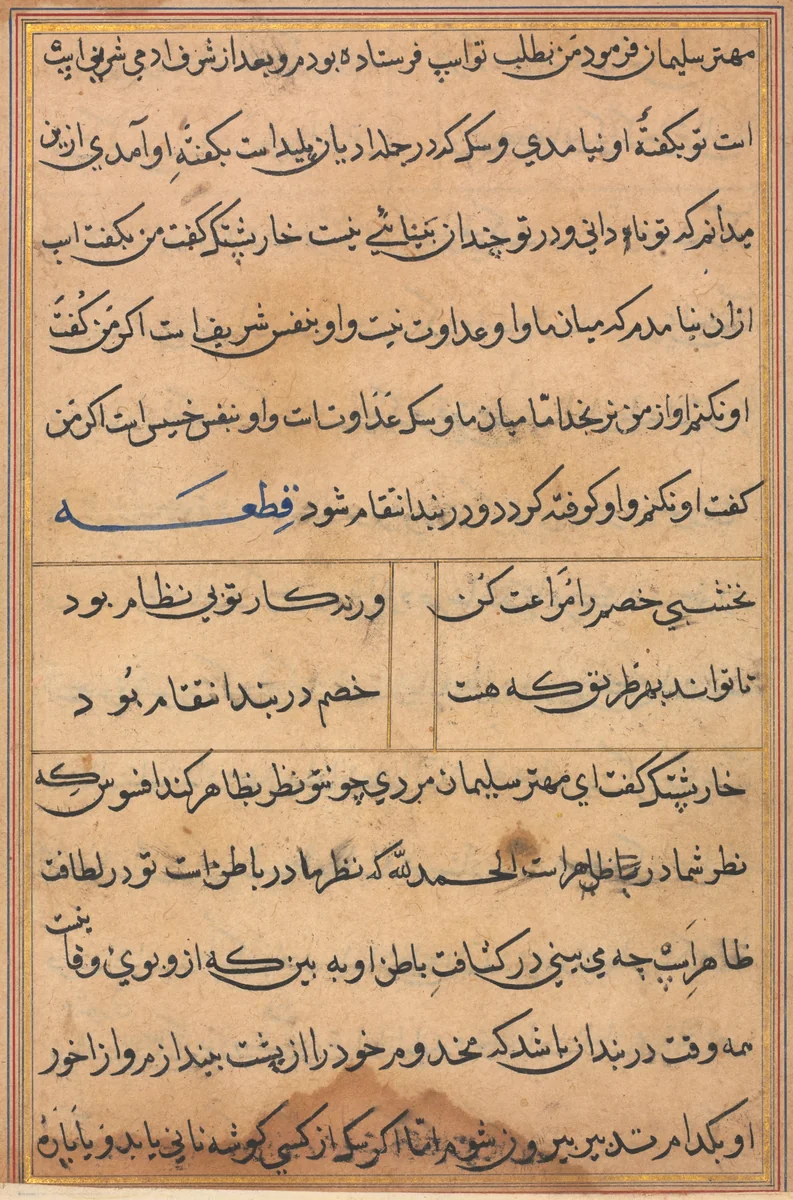 مهتر سلیمان فرمود من بطلب تو اسپ فرستاده بودم و بعد از شرف ادمی شریفی اسپ
است تو بکفتهٔ او نیامدی و سک که در جمله ادیان پلیداست بکفتهِ او آمدی ازین
میدانم که تو نادانی و در تو چندان بینائیُ نیست خارپشتک کفت من بکفت اسپ
ازان نیامدم که میان ما و او عداوت نیست و او بنفس شریف است اکر من کُفتَ
او نکنم او از من نرنجد امّا میان ما و سک عَدَاوت است و او بنفس خسیس است اکر مَن
کفت او نکنم و او کوفته کردد و در بند انتقام شود قِطعَه
نخشبی خصم را مُرَاعت کُن
ورنه کار تو بی نظام بود
تا تواند بهر طریق که هست
خصم در بند انتقام بُود
خارپشتک کفت ای مهتر سلیمان مردی چو تو نظر بظاهر کند افسوس کِه
نظر شما در ظاهر است الحمد للّه که نظر ما در باطن است تو در لطافت
ظاهرِ اسپ چه می بینی در کثافتِ باطن او به بین که ازو بوی وفا نیست
همه وقت در بند ان باشد که مخدوم خود را از پشت بیندازم و از اخور
او بکدام تدبیر بیرون شوم امّا اکر سک از کسی کوشه نانی یابد و یا پَارَهٔ